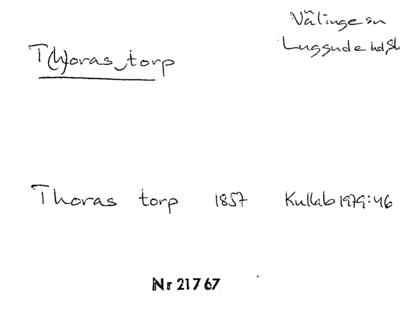 Välinge sn
Luggude hd, Sk
T(h)oras torp
Thoras torp 1857 Kullab 1979:46
Nr 21767